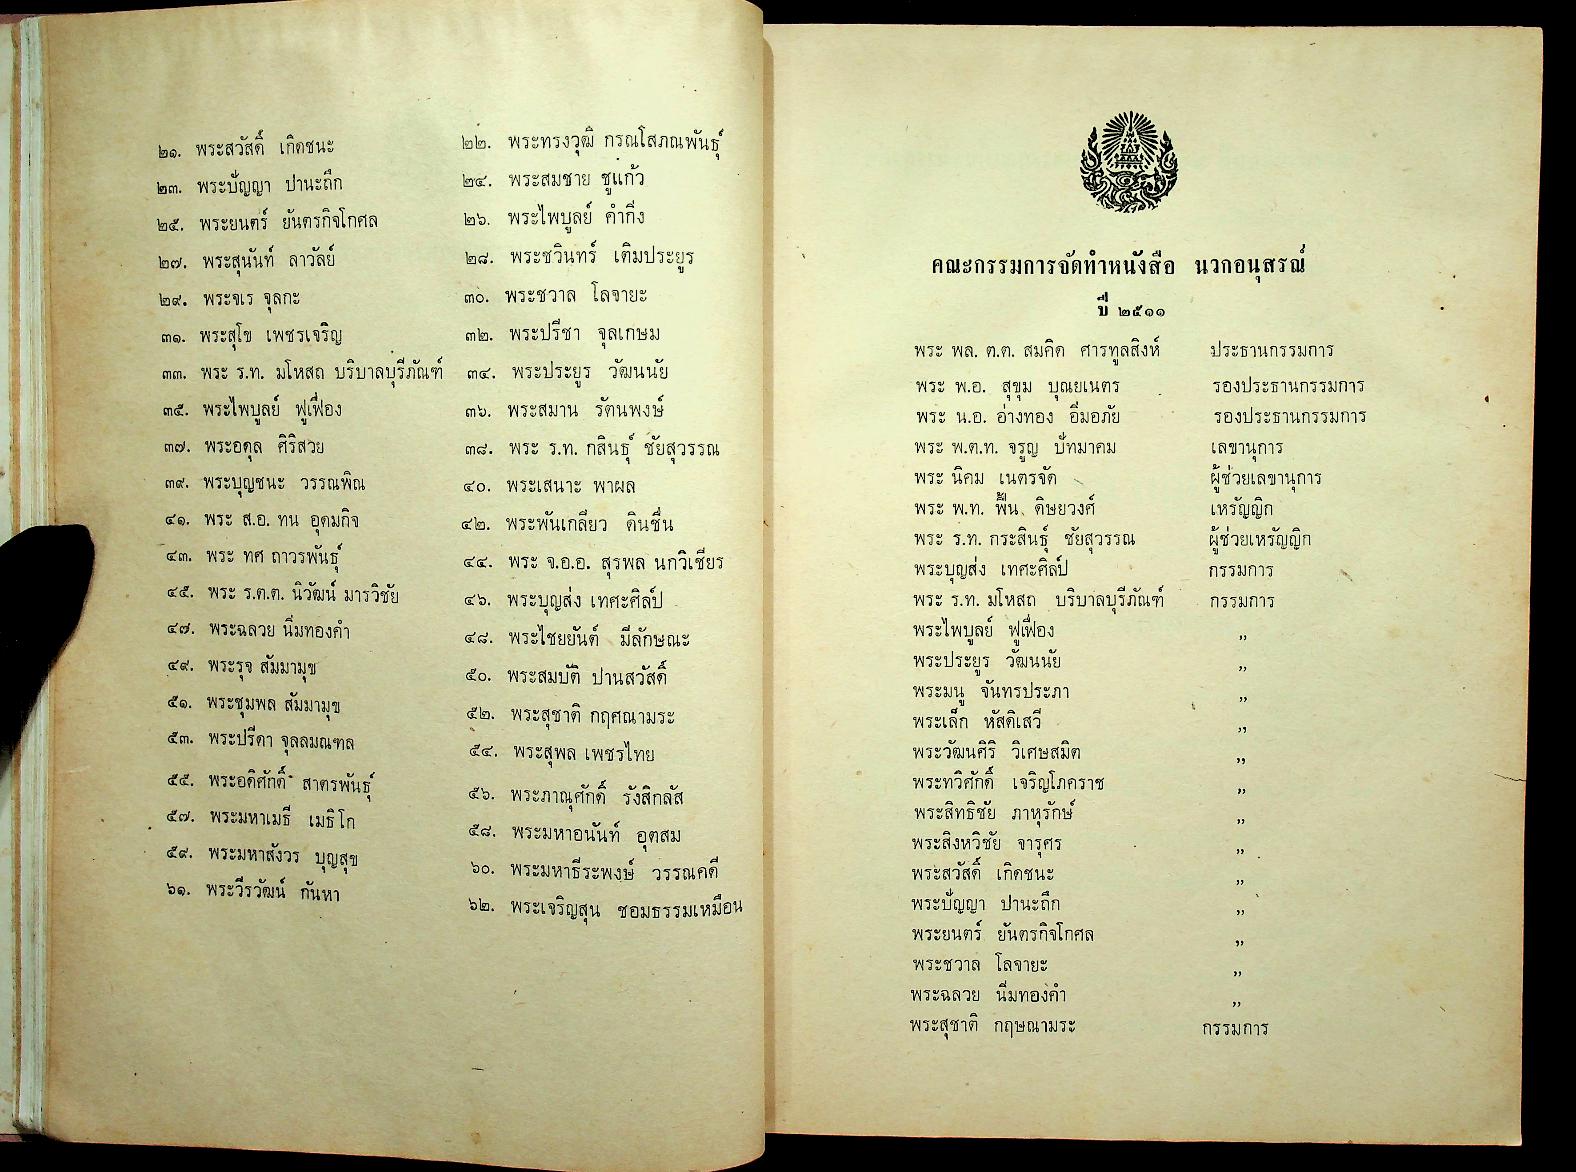 ๒๑. พระสวัสดิ์ เกิดชนะ
๒๒. พระทรงวุฒิ กรณโสภณพันธุ์
๒๓. พระปัญญา ปานะถึก
๒๔. พระสมชาย ชูแก้ว
๒๕. พระยนตร์ ยันตรกิจโกศล
๒๖. พระไพบูลย์ คำกิ่ง
๒๗. พระสุนันท์ ลาวัลย์
๒๘. พระชวินทร์ เติมประยูร
๒๙. พระจเร จุลกะ
๓๐. พระชวาล โลจายะ
๓๑. พระสุโข เพชรเจริญ
๓๒. พระปรีชา จุลเกษม
๓๓. พระ ร.ท. มโหสถ บริบาลบุรีภัณฑ์
๓๔. พระประยูร วัฒนนัย
๓๕. พระไพบูลย์ ฟูเฟื่อง
๓๖. พระสมาน รัตนพงษ์
๓๗. พระอดุล ศิริสวย
๓๘. พระ ร.ท. กสินธุ์ ชัยสุวรรณ
๓๙. พระบุญชนะ วรรณพิณ
๔๐. พระเสนาะ พาผล
๔๑. พระ ส.อ. ทน อุดมกิจ
๔๒. พระพันเกลียว ดินชื่น
๔๓. พระ ทศ ถาวรพันธุ์
๔๔. พระ จ.อ.อ. สุรพล นกวิเชียร
๔๕. พระ ร.ต.ต. นิวัฒน์ มารวิชัย
๔๖. พระบุญส่ง เทศะศิลป์
๔๗. พระฉลวย นิ่มทองคำ
๔๘. พระไชยยันต์ มีลักษณะ
๔๙. พระรุจ สัมมามุข
๕๐. พระสมบัติ ปานสวัสดิ์
๕๑. พระชุมพล สัมมามุข
๕๒. พระสุชาติ กฤศณามระ
๕๓. พระปรีดา จุลลมณฑล
๕๔. พระสุพล เพชรไทย
๕๕. พระอดิศักดิ์ สาตรพันธุ์
๕๖. พระภาณุศักดิ์ รังสิกลัส
๕๗. พระมหาเมธี เมธิโก
๕๘. พระมหาอนันท์ อุตสม
๕๙. พระมหาสังวร บุญสุข
๖๐. พระมหาธีระพงษ์ วรรณคดี
๖๑. พระวีรวัฒน์ กันหา
๖๒. พระเจริญสุน ชอมธรรมเหมือน
คณะกรรมการจัดทำหนังสือ นวกอนุสรณ์
ปี ๒๕๑๑
พระ พล. ต.ต. สมคิด ศารทูลสิงห์ ประธานกรรมการ
พระ พ.อ. สุขุม บุณยเนตร รองประธานกรรมการ
พระ น.อ. อ่างทอง อิ่มอภัย รองประธานกรรมการ
พระ พ.ต.ท. จรูญ ปัทมาคม เลขานุการ
พระ นิคม เนตรจัด ผู้ช่วยเลขานุการ
พระ พ.ท. ฟื้น ดิษยวงศ์ เหรัญญิก
พระ ร.ท. กระสินธุ์ ชัยสุวรรณ ผู้ช่วยเหรัญญิก
พระบุญส่ง เทศะศิลป์ กรรมการ
พระ ร.ท. มโหสถ บริบาลบุรีภัณฑ์ กรรมการ
พระไพบูลย์ ฟูเฟื่อง ,,
พระประยูร วัฒนนัย ,,
พระมนู จันทรประภา ,,
พระเล็ก หัสดิเสวี ,,
พระวัฒนศิริ วิเศษสมิต ,,
พระทวิศักดิ์ เจริญโภคราช ,,
พระสิทธิชัย ภาหุรักษ์ ,,
พระสิงหวิชัย จารุศร ,,
พระสวัสดิ์ เกิดชนะ ,,
พระปัญญา ปานะถึก ,,
พระยนตร์ ยันตรกิจโกศล ,,
พระชวาล โลจายะ ,,
พระฉลวย นิ่มทองคำ ,,
พระสุชาติ กฤษณามระ กรรมการ